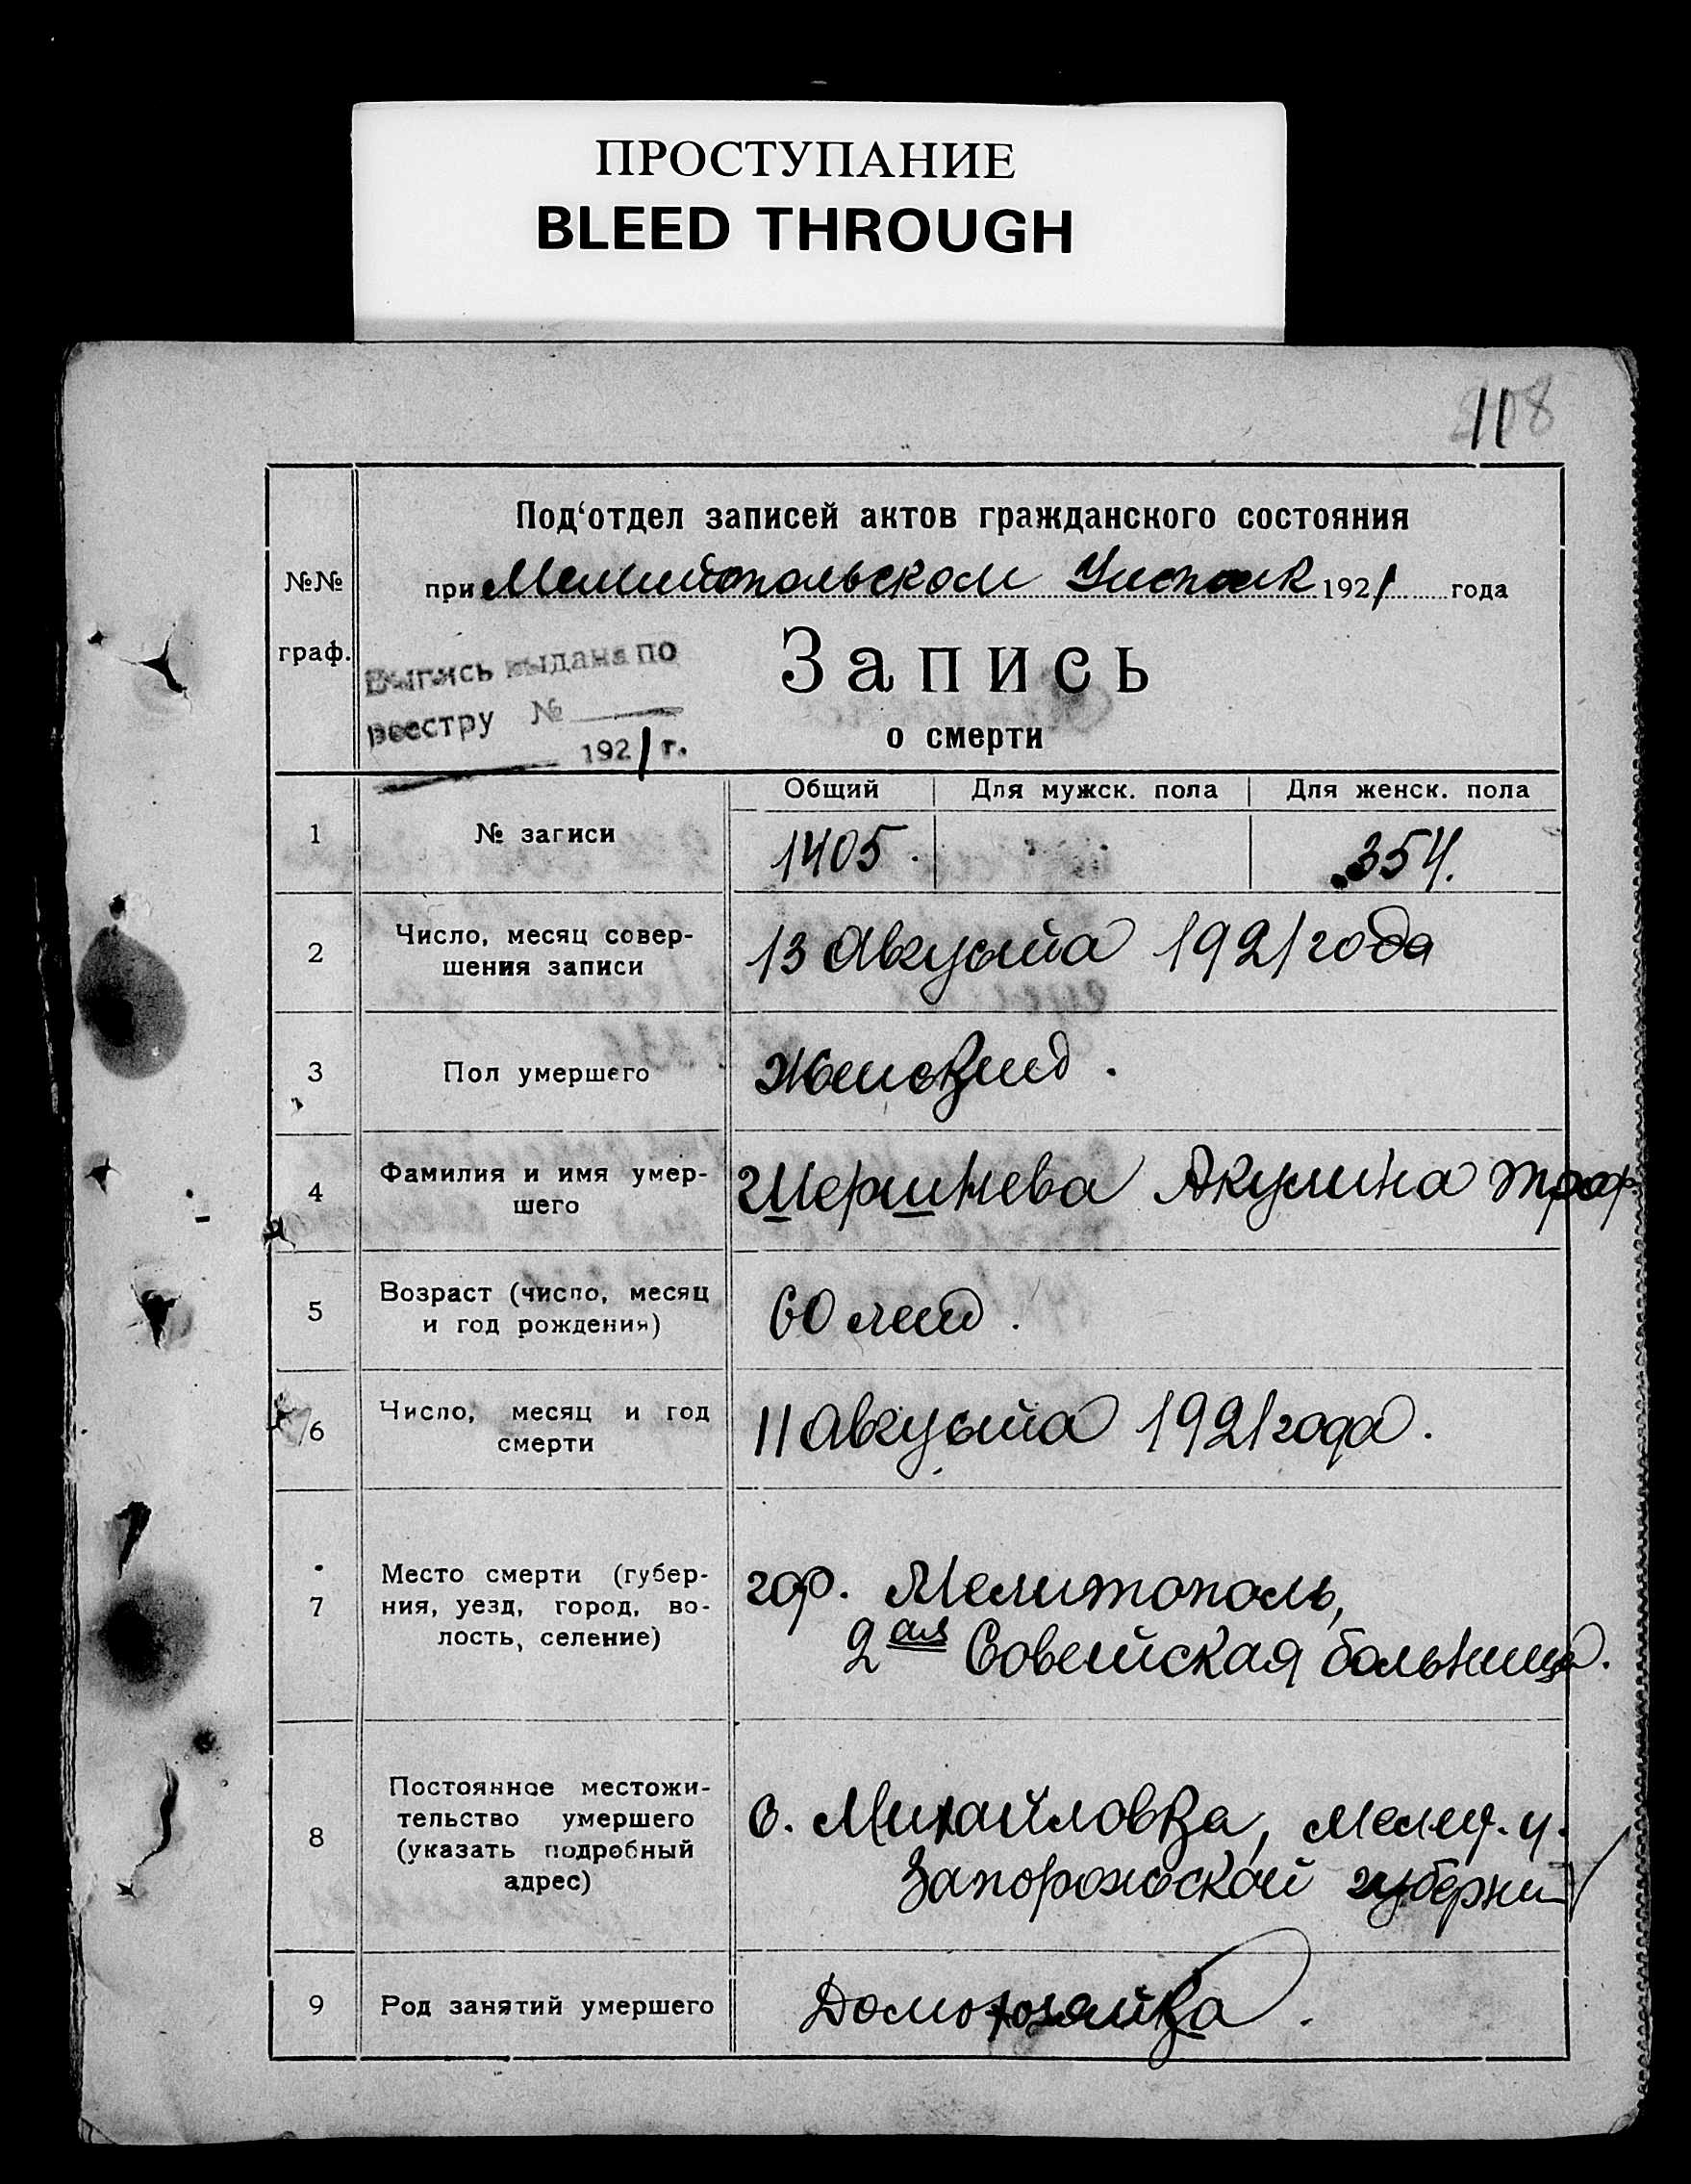 ПРОСТУПАНИЕ
BLEED THROUGH
11
208
Под‘отдел записей актов гражданского состояния
№№
граф.
при Мелитопольском Уисполк 1921 года
Выпись выдана по
реестру №
1921 г.
Запись
о смерти
Общий
Для мужск. пола
Для женск. пола
1
№ записи
1405.
354.
2
Число, месяц совер-
шения записи
13 Августа 1921 года
3
Пол умершего
Женский.
4
Фамилия и имя умер-
шего
Шершнева Акулина Троф.
5
Возраст (число, месяц
и год рождения)
60 лет.
6
Число, месяц и год
смерти
11 Августа 1921 года.
7
Место смерти (губер-
ния, уезд, город, во-
лость, селение)
гор. Мелитополь,
2ая Советская больница.
8
Постоянное местожи-
тельство умершего
(указать подробный
адрес)
С. Михайловка, Мелит. у.
Запорожской губернии
9
Род занятий умершего
Домохозяйка.